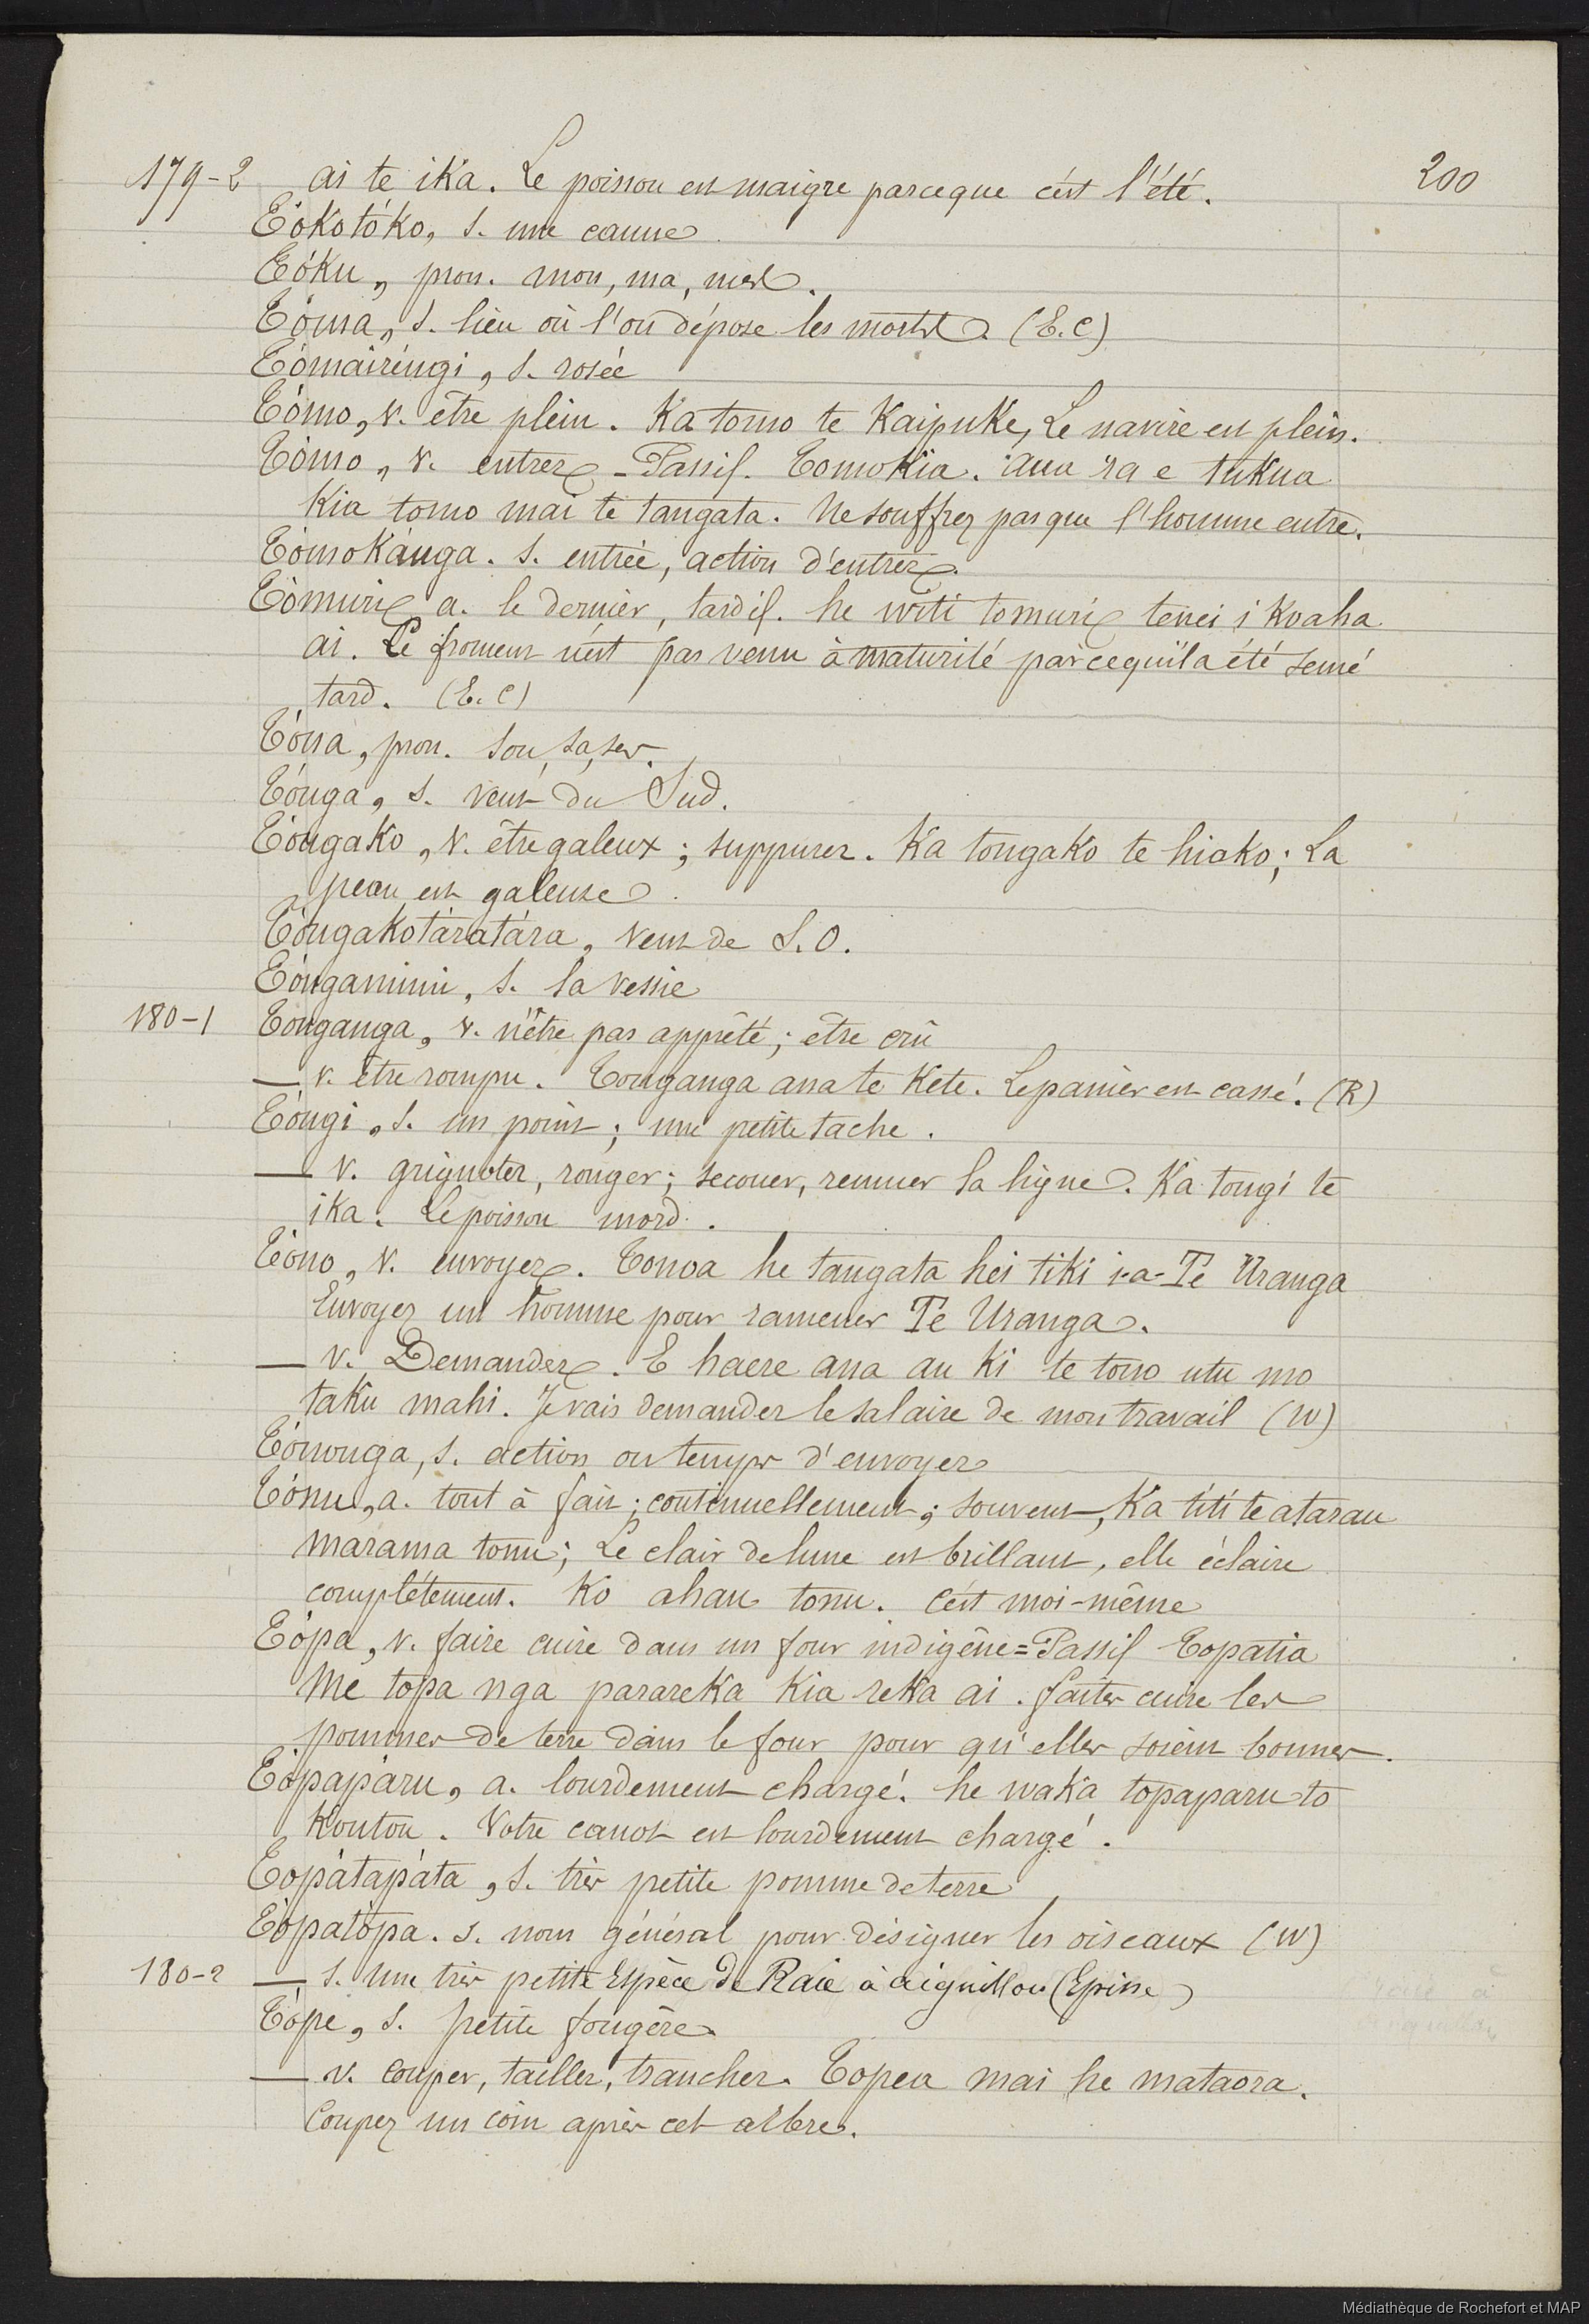 179-2 ai te ika. Le poisson est maigre parceque c'est l'été. 200
Tókotóko, s. une canne
Tóku, pron. mon, ma, mes.
Tóma, s. lieu où l'on dépose les morts. (E.C)
Tómairéngi, s. rosée
Tómo, v. être plein. Ka tomo te Kaipuke, Le navire est plein.
Tómo, v. entrer - Passif. Tomokia. Aua ra e tukua
Kia tomo mai te tangata. Ne souffrez pas que l'homme entre.
Tómokánga. s. entrée, action d'entrer.
Tómuri, a. le dernier, tardif. he witi tomuri tenei i Koaha
ai. Le froment n'est pas venu à maturité parcequ'il a été semé
tard. (E.C)
Tóna, pron. son, sa, ses.
Tónga, s. vent du Sud.
Tóngako, v. être galeux; suppurer. Ka tongako te hiako; La
peau est galeuse.
Tóngakotáratára, vent de S.O.
Tóngamimi, s. la vessie
180-1 Tonganga, v. n'être pas apprêté; être crû
— v. être rompu. Tonganga ana te Kete. Le panier est cassé. (R)
Tóngi, s. un point; une petite tache.
— v. grignoter, ronger; secouer, remuer la ligne. Ka tongi te
ika. Le poisson mord.
Tóno, v. envoyer. Tonoa he tangata hei tiki i-a-Te Uranga
Envoyez un homme pour ramener Te Uranga.
— v. Demander. E haere ana au Ki te tono utu mo
taku mahi. Je vais demander le salaire de mon travail (W)
Tónonga, s. action ou temps d'envoyer
Tónu, a. tout à fait; continuellement; souvent, Ka titi te atarau
marama tonu; Le clair de lune est brillant, elle éclaire
complétement. Ko ahau tonu. C'est moi-même
Tópa, v. faire cuire dans un four indigène = Passif Topatia
Me topa nga parareka Kia reka ai. faites cuire les
pommes de terre dans le four pour qu'elles soient bonnes.
Tópapáru, a. lourdement chargé. he waka topaparu to
Koutou. Votre canot est lourdement chargé.
Topátapáta, s. très petite pomme de terre
Tópatópa. s. nom général pour désigner les oiseaux (W)
180-2 — s. Une très petite Espèce de Raie à aiguillon (Epine)
Tópe, s. petite fougère.
— v. couper, tailler, trancher. Topea mai he mataora.
Coupez un coin après cet arbre.
Médiathèque de Rochefort et MAP